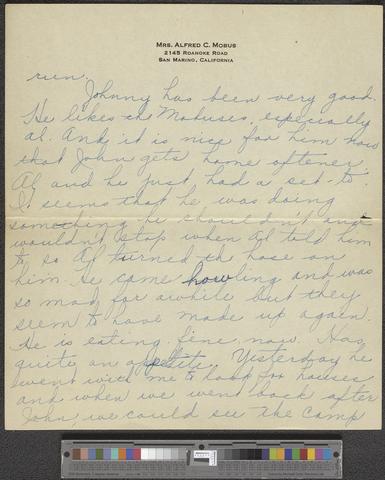 MRS. ALFRED C. MOBUS
2145 ROANOKE ROAD
SAN MARINO, CALIFORNIA
run.
Johnny has been very good.
He likes the Mobuses, especially
al. And it is nice for him now
that John gets home oftener.
Al and he just had a set-to.
It seems that he was doing
something he shouldn't and
wouldn't stop when Al told him
to, so Al turned the hose on
him. He came howling and was
so mad for awhile but they
seem to have made up again.
He is eating fine now. Has
quite an appetite. Yesterday he
went with me to look for houses
and when we went back after
John, we could see the Camp